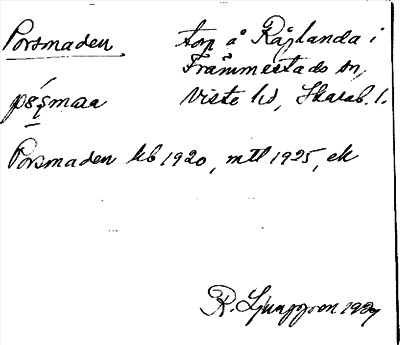 Porsmaden torp å Råglanda i
Främmestads sn,
Viste hd, Skarab. l.
Porsmaden kb 1920, mtl 1925, ek
R. Ljunggren 1927